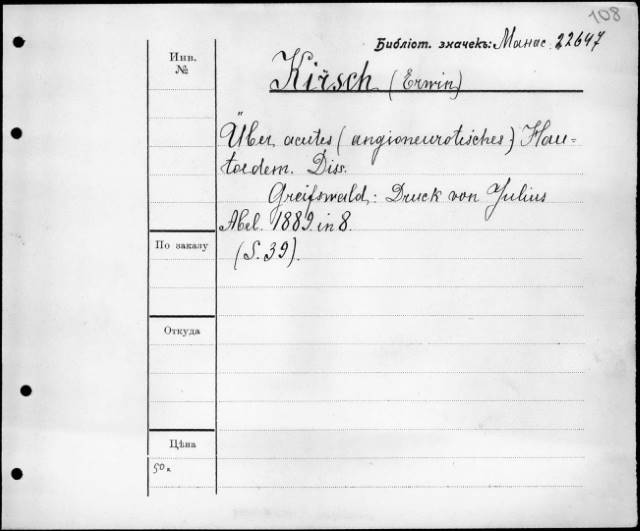 108
Библіот. значекъ: Манас. 22647
Инв.
№
Kirsch (Erwin)
Über acutes (angioneurotisches) Hau-
toedem. Diss.
Greifswald: Druck von Julius
Abel. 1889. in 8.
По заказу
(S. 39).
Откуда
Цѣна
50 к